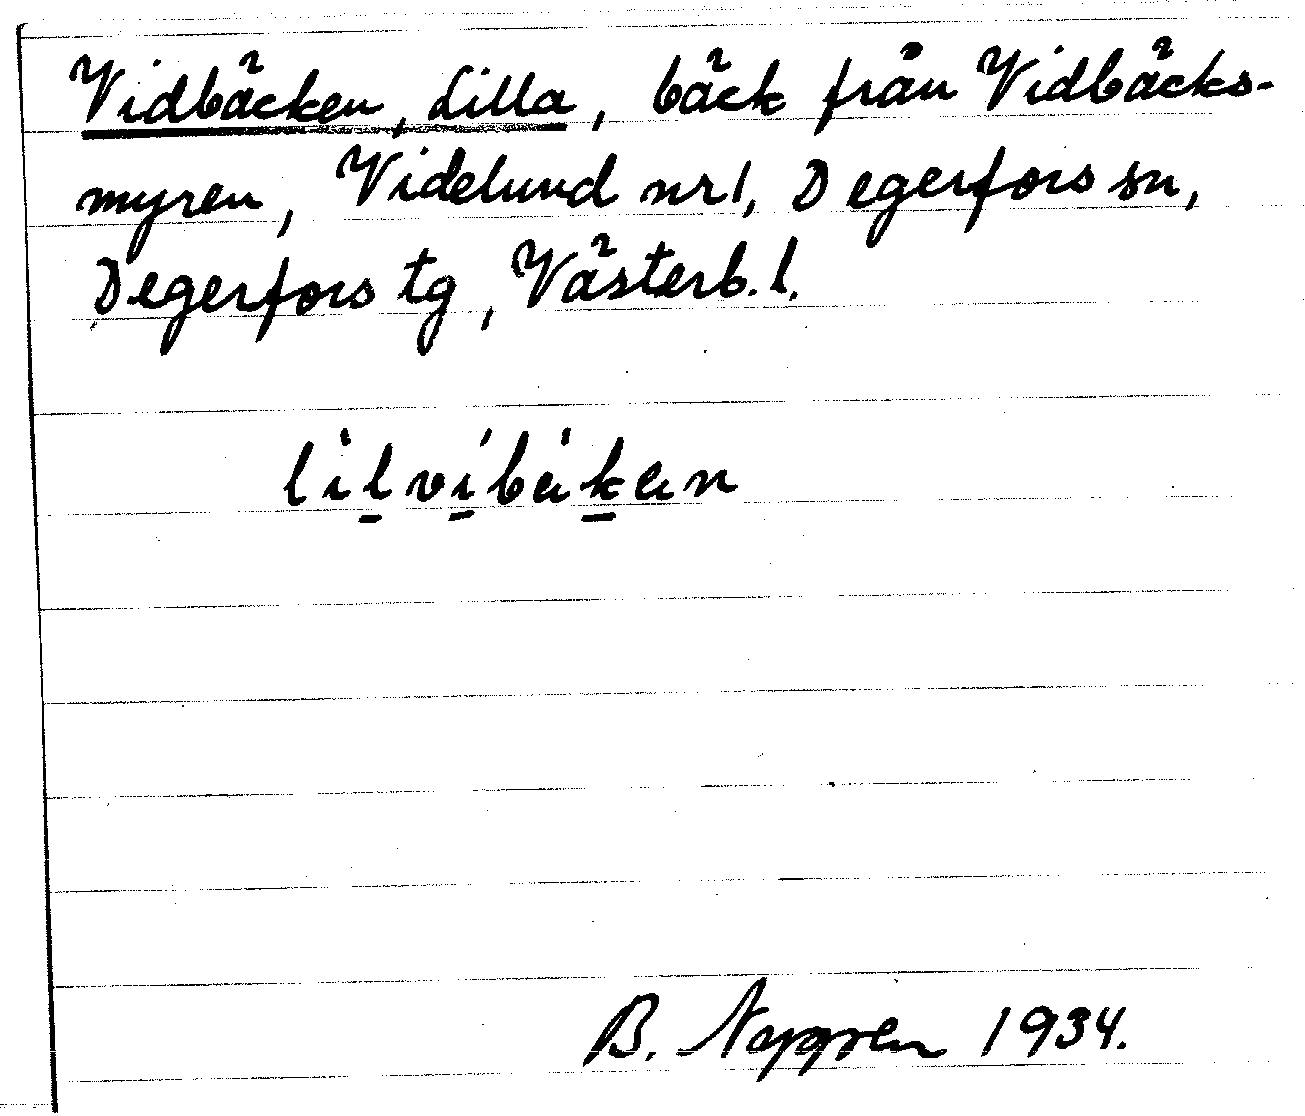 Vidbäcken, Lilla, bäck från Vidbäcks-
myren, Videlund nr 1, Degerfors sn,
Degerfors tg, Västerb. l.
B. 1934.